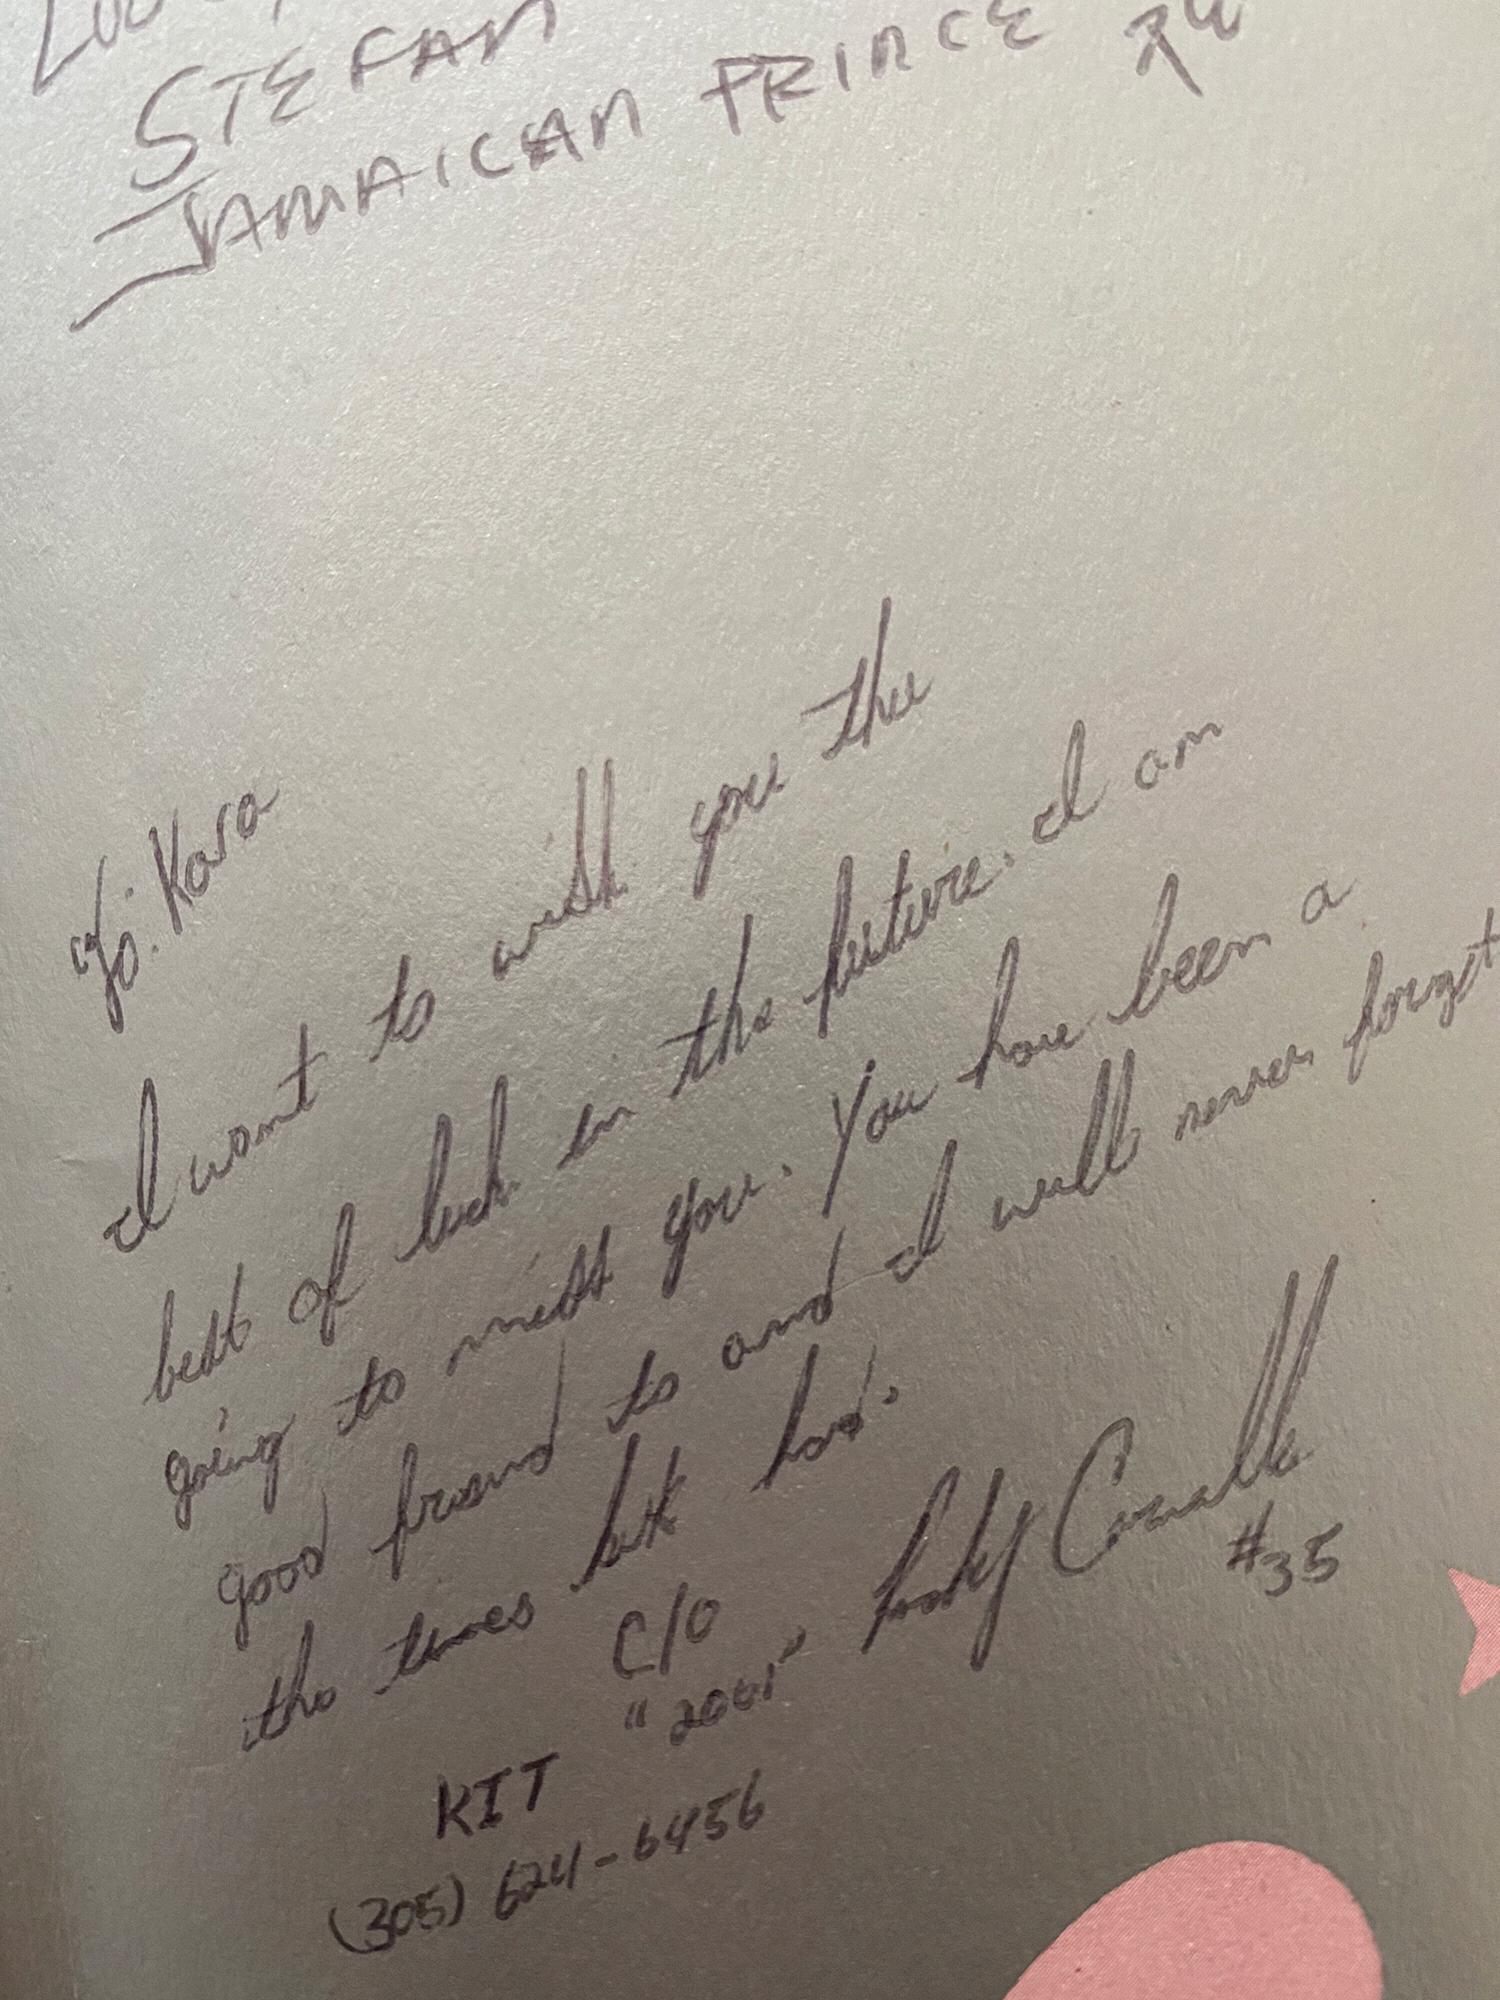 STEFAN
JAMAICAN PRINCE
To: Kara
I want to wish you the
best of luck in the future. I am
going to miss you. You have been a
good friend to and I will never forget
the times had.
C/O
"2001"
#35
KIT
(305) 624-6456